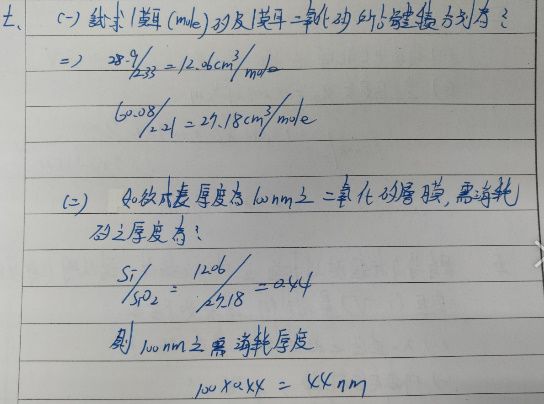 七、(一) 試求1莫耳(mole)矽及1莫耳二氧化矽所占體積分別為?
=) 28.9/2.33 = 12.06cm³/mole
60.08/2.21 = 27.18cm³/mole
(二) 如欲成長厚度為100nm之二氧化矽層膜,需消耗
矽之厚度為?
Si/SiO₂ = 12.06/27.18 = 0.44
則100nm之需消耗厚度
100×0.44 = 44nm